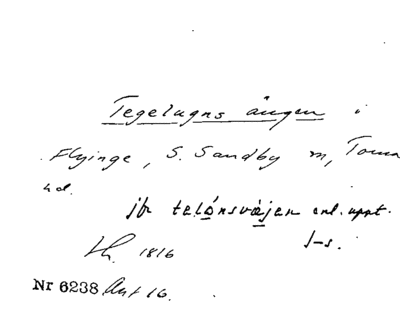 Tegelugns ängen i
Flyinge, S. Sandby sn, Torna
hd.
jfr telónsväjen enl. uppt.
J-s.
Lh. 1816
Nr 6238 Akt 16.